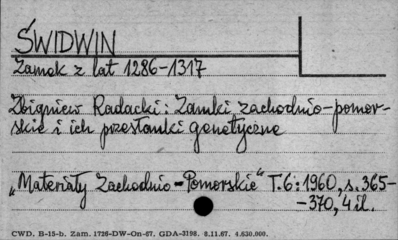 ŚWIDWIN
Zamek z lat 1286-1317
Zbigniew Radacki: Zamki zachodnio-pomor-
skie i ich przesłanki genetyczne
„Materiały Zachodnio-Pomorskie" T.6:1960, s.365-
-370, 4 il.
CWD, B-15-b. Zam. 1726-DW-On-67. GDA-3198. 8.11.67. 4.630.000.